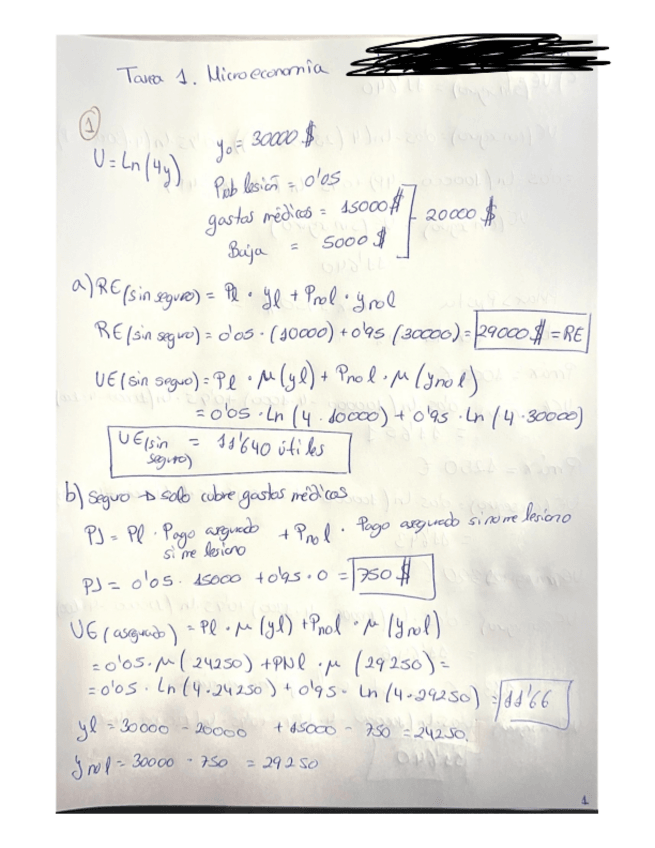 Tarea 1. Microeconomía
1
U = Ln(4y)
y₀ = 30000 $
Prob lesión = 0'05
gastos médicos = 15000 $
20000 $
Baja = 5000 $
a) RE(sin seguro) = Pl · yl + Pnol · ynol
RE(sin seguro) = 0'05 · (10000) + 0'95 (30000) = 29000 $ = RE
UE(sin seguro) = Pl · μ(yl) + Pnol · μ(ynol)
= 0'05 · Ln(4 · 10000) + 0'95 · Ln(4 · 30000)
UE(sin seguro) = 11'640 útiles
b) Seguro → solo cubre gastos médicos
PJ = Pl · Pago asegurado si me lesiono + Pnol · Pago asegurado si no me lesiono
PJ = 0'05 · 15000 + 0'95 · 0 = 750 $
UE(asegurado) = Pl · μ(yl) + Pnol · μ(ynol)
= 0'05 · μ(24250) + PNl · μ(29250) =
= 0'05 · Ln(4·24250) + 0'95 · Ln(4·29250) = 11'66
yl = 30000 - 20000 + 15000 - 750 = 24250.
ynol = 30000 - 750 = 29250
1